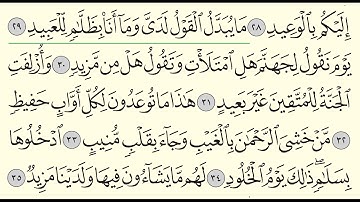 إِلَيْكُم بِالْوَعِيدِ ٢٨ مَا يُبَدَّلُ الْقَوْلُ لَدَىَّ وَمَا أَنَا۠ بِظَلَّٰمٍ لِّلْعَبِيدِ ٢٩
يَوْمَ نَقُولُ لِجَهَنَّمَ هَلِ امْتَلَأْتِ وَتَقُولُ هَلْ مِن مَّزِيدٍ ٣٠ وَأُزْلِفَتِ
الْجَنَّةُ لِلْمُتَّقِينَ غَيْرَ بَعِيدٍ ٣١ هَٰذَا مَا تُوعَدُونَ لِكُلِّ أَوَّابٍ حَفِيظٍ
٣٢ مَّنْ خَشِىَ الرَّحْمَٰنَ بِالْغَيْبِ وَجَآءَ بِقَلْبٍ مُّنِيبٍ ٣٣ ادْخُلُوهَا
بِسَلَٰمٍ ۖ ذَٰلِكَ يَوْمُ الْخُلُودِ ٣٤ لَهُم مَّا يَشَآءُونَ فِيهَا وَلَدَيْنَا مَزِيدٌ ٣٥